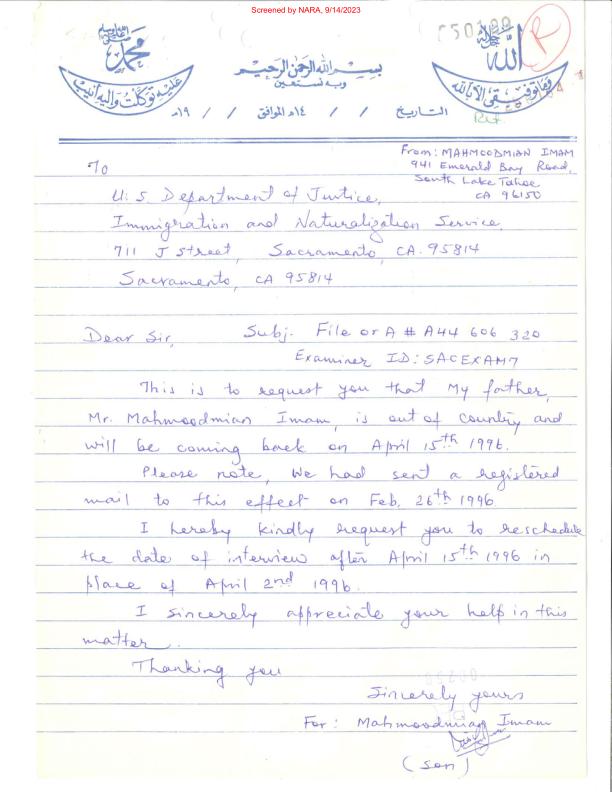 Screened by NARA, 9/14/2023
محمد
الله جل جلاله
بسم الله الرحمن الرحيم
وبه نستعين
عليه توكلت واليه انيب
وما توفيقي الا بالله
التاريخ / / ١٤هـ الموافق / / ١٩م
R
From: MAHMOODMIAN IMAM
941 Emerald Bay Road,
South Lake Tahoe
CA 96150
To
U.S. Department of Justice,
Immigration and Naturalization Service,
711 J Street, Sacramento, CA. 95814
Sacramento, CA 95814
Dear Sir, Subj. File or A # A44 606 320
Examiner ID: SACEXAM7
This is to request you that My father,
Mr. Mahmoodmian Imam, is out of country and
will be coming back on April 15th 1996.
Please note, We had sent a registered
mail to this effect on Feb. 26th 1996.
I hereby kindly request you to reschedule
the date of interview after April 15th 1996 in
place of April 2nd 1996.
I sincerely appreciate your help in this
matter.
Thanking you
Sincerely yours
For: Mahmoodmian Imam
(son)